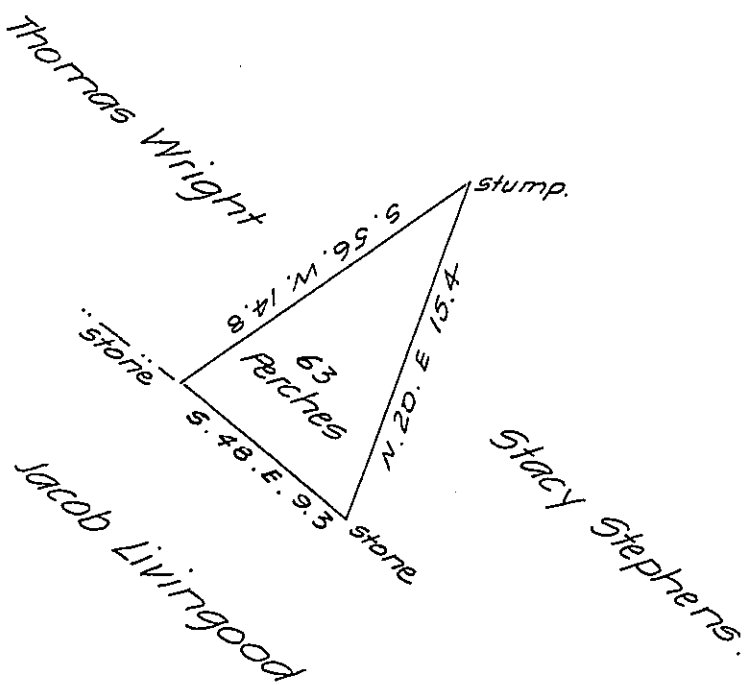 Thomas Wright
stump.
S. 56. W. 14.8
N. 20. E 15.4
stone
63
Perches
S. 48. E. 9.3
stone
Stacy Stephens.
Jacob Livingood